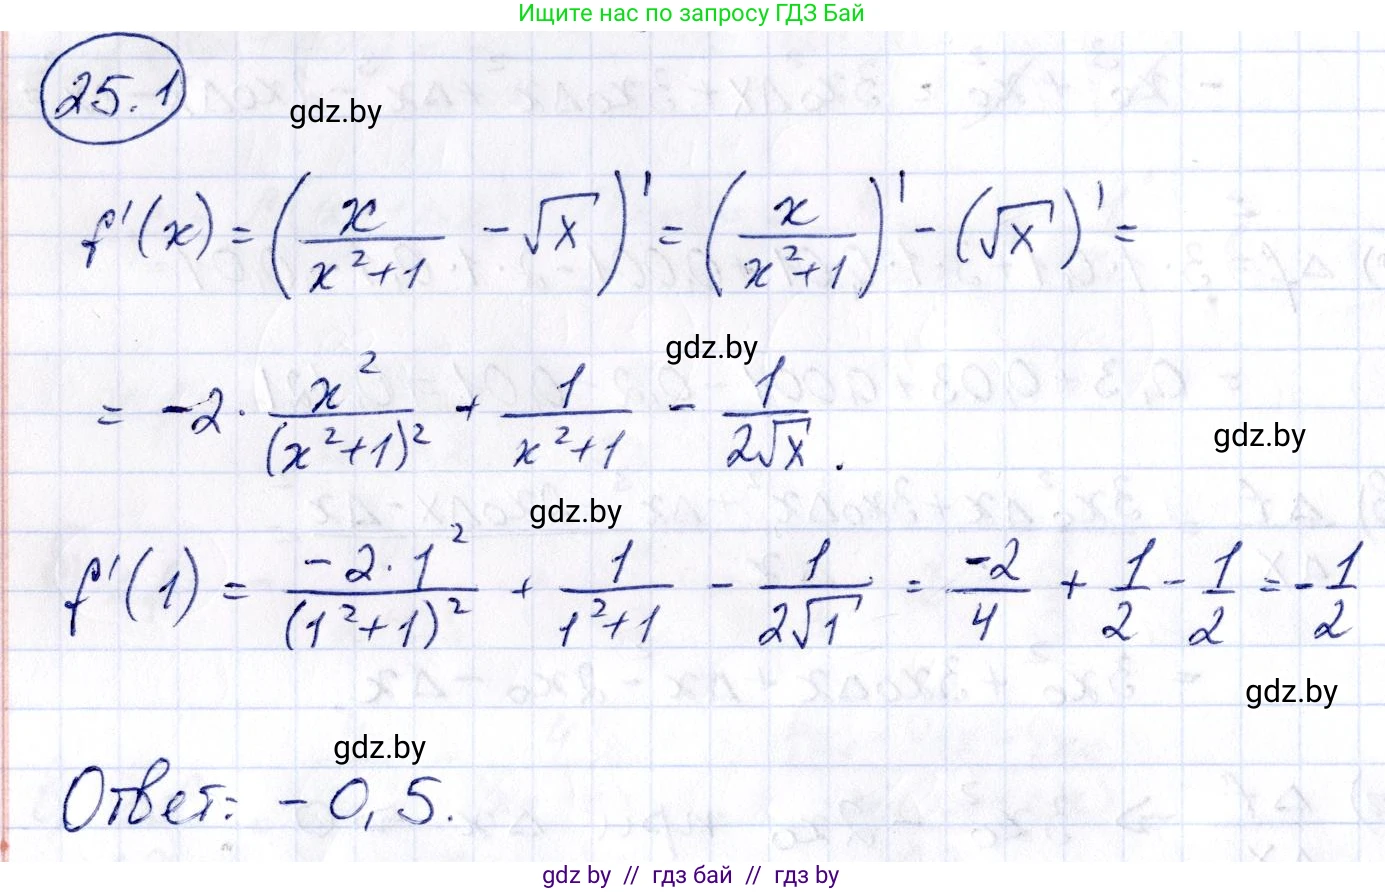 Ищите нас по запросу ГДЗ Бай
25.1
gdz.by
f'(x) = (x/(x²+1) - √x)' = (x/(x²+1))' - (√x)' =
gdz.by
= -2 · x²/(x²+1)² + 1/(x²+1) - 1/(2√x).
gdz.by
gdz.by
f'(1) = (-2·1²)/(1²+1)² + 1/(1²+1) - 1/(2√1) = -2/4 + 1/2 - 1/2 = -1/2
gdz.by
gdz.by
Ответ: -0,5.
gdz.by // гдз бай // гдз by